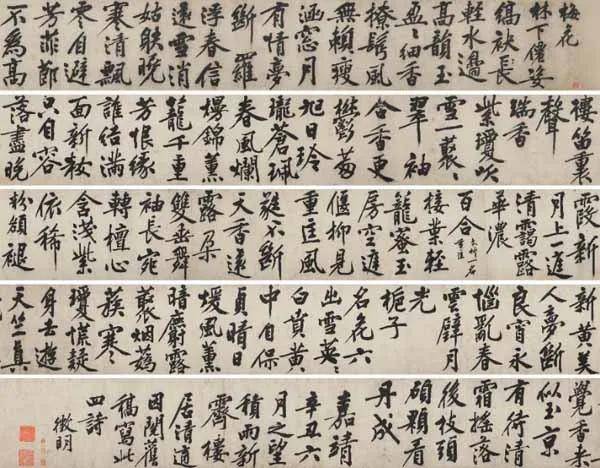 梅花
林下儇姿
縞袂長
輕水邊
高韻玉
盈盈細香
撩鬂風
無賴瘦
涵窓月
有情夢
斷羅
浮春信
遠雪消
姑射晚
寒清飄
零自避
芳菲節
不為高
樓笛裏
聲
瑞香
紫瓊吹
雪一叢叢
翠袖
合香更
鬱葱
旭日玲
瓏蒼珮
春風爛
熳錦薰
籠千重
芳恨緣
誰結滿
面新妝
只自容
落盡晚
霞新
月上一
清靄露
華濃
百合
接葉輕
籠蜜玉
房空
偃柳見
重匡風
蕤不斷
天香遠
露朵
雙垂舞
袖長宛
轉檀心
含淺紫
依稀
粉額褪
新黃美
人夢斷
良宵永
惱亂春
雲壁月
光
梔子
名花六
出雪英英
白質黃
中自保
貞晴日
煖風薰
暗麝露
叢烟
簇寒
瓊慌疑
身去遊
天竺真
覺香来
似玉京
有待清
霜搖落
後枝頭
碩顆看
丹成
嘉靖
辛丑六
月之望
積雨新
霽樓
居清適
因閒舊
稿寫此
四詩
徵明